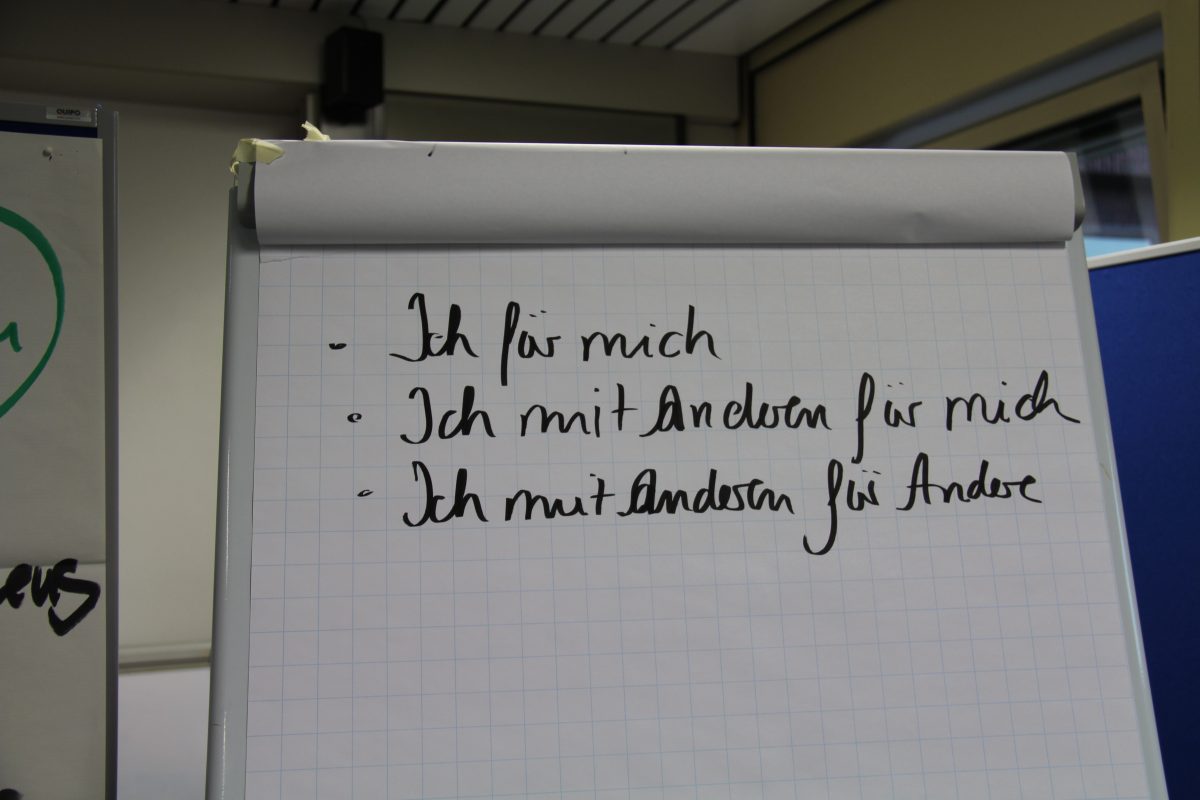 - Ich für mich
• Ich mit Anderen für mich
• Ich mit Anderen für Andere